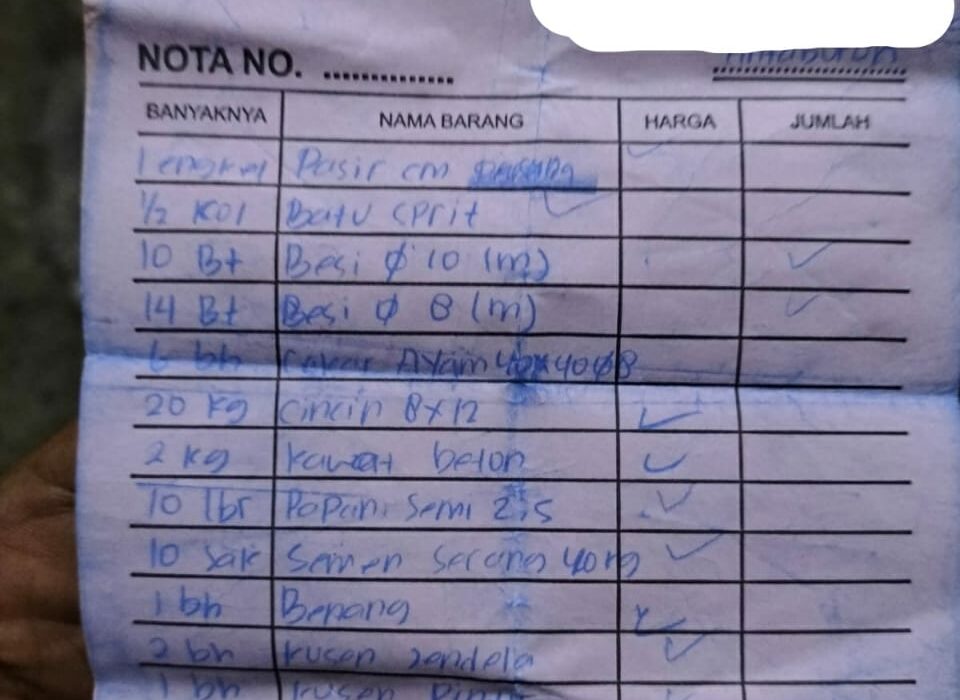 NOTA NO. ..............
BANYAKNYA NAMA BARANG HARGA JUMLAH
1 engkel Pasir cm
1/2 Kol Batu Sprit
10 Bt Besi ϕ 10 (m)
14 Bt Besi ϕ 8 (m)
6 bh Cakar Ayam 40x40 ϕ8
20 Kg Cincin 8x12
2 Kg Kawat beton
10 lbr Papan Semi 2,5
10 Sak Semen Serang 40kg
1 bh Benang
2 bh Kusen Jendela
1 bh Kusen